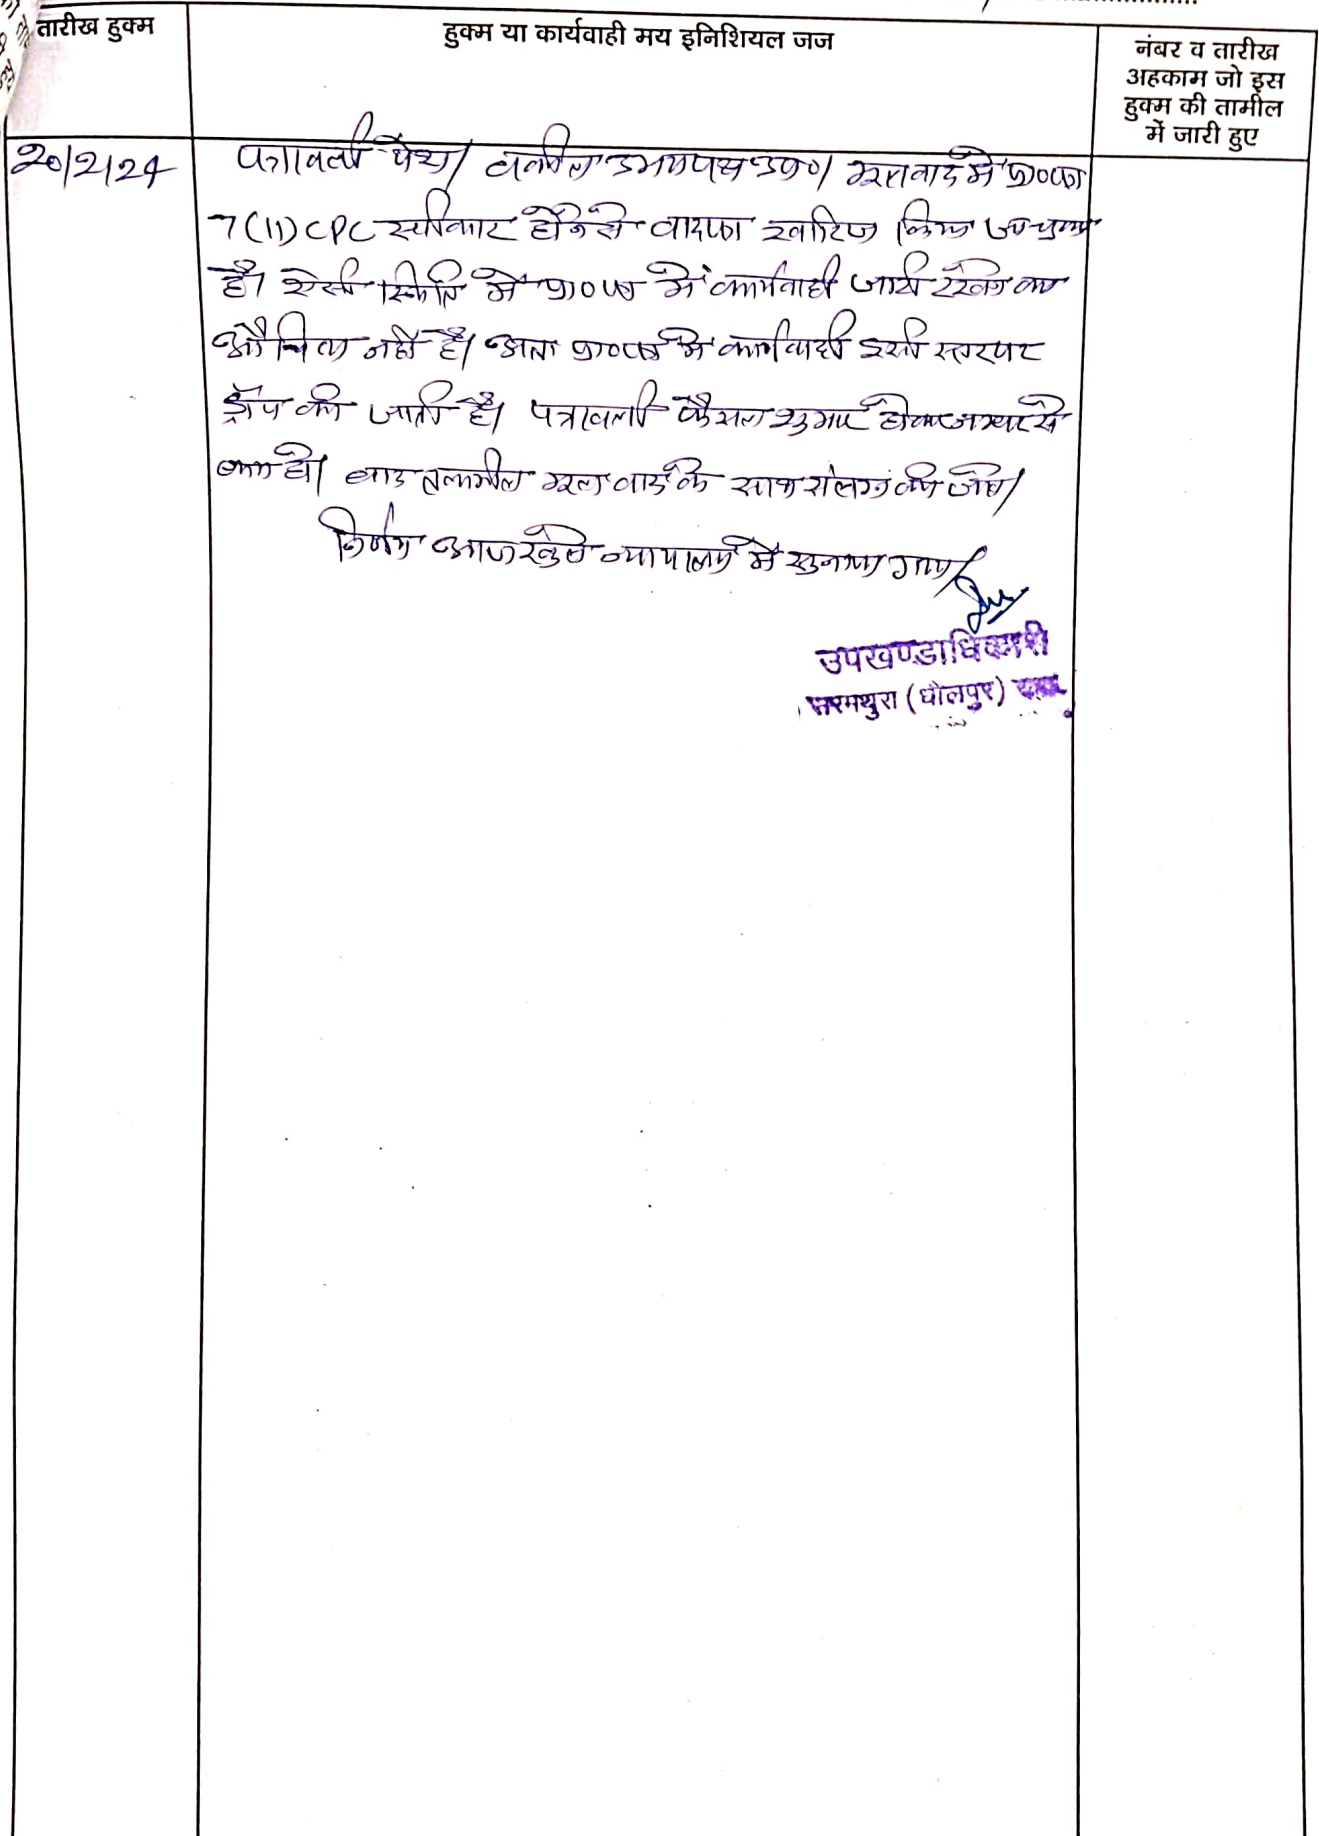 तारीख हुक्म
हुक्म या कार्यवाही मय इनिशियल जज
नंबर व तारीख
अहकाम जो इस
हुक्म की तामील
में जारी हुए
20/2/24
पत्रावली पेश। वकील उभयपक्ष उप०। मूलवाद में प्रा०पत्र
7(11) CPC स्वीकार होने से वादपत्र खारिज किया जा चुका
है। ऐसी स्थिति में प्रा०पत्र में कार्यवाही जारी रखने का
औचित्य नहीं है। अतः प्रा०पत्र में कार्यवाही इसी स्तर पर
ड्रॉप की जाती है। पत्रावली फैसल शुमार होकर नम्बर से
कम हो। बाद तकमील मूल वाद के साथ संलग्न की जावे।
निर्णय आज खुले न्यायालय में सुनाया गया।
उपखण्डाधिकारी
सरमथुरा (धौलपुर)